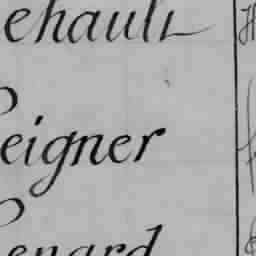 ehault
eigner
enard